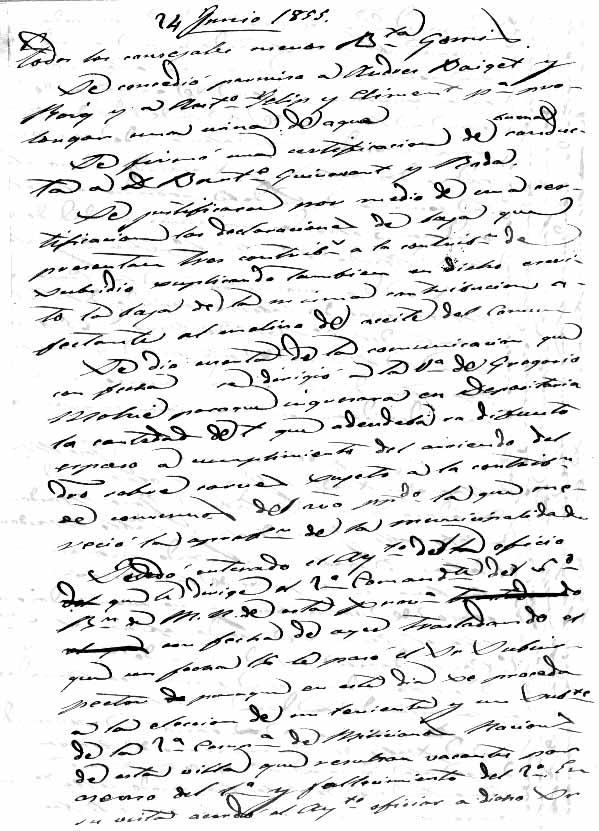 24 Junio 1855.
Todos los concejales menos Bta Gomis.
Se concedio permiso a Andres Baiget y
Roig y a Anto Felip y Climent pa pro-
longar una mina de agua
Se firmó una certificacion de buena conduc-
ta a D. Bauto Guinovart y Boda.
Se justificaron por medio de una cer-
tificacion las declaraciones de baja que
presentan tres contribs a la contribn de
Subsidio suplicando tambien en dicho escri-
to la baja de la misma contribucion a-
fectante al molino de aceite del Comun
Se dio cuenta de la comunicacion que
con fecha se dirigió a la Va de Gregorio
para que ingresara en Depositaria
la cantidad de que adeudaba su difunto
esposo a cumplimiento del arriendo del
dro sobre carnes sujeto a la contribn
de consumos del año ppdo la que me-
reció la aprobn de la municipalidad
Quedó enterado el Ayto del oficio
que le dirige el 2o Comandte del 5o
Bn de M. N. de esta Prova
con fecha de ayer trasladando el
que con fecha 16 le pasó el Sr Subins-
pector para que en este dia se proceda
a la eleccion de un teniente y un Subte
de la 2a Compa de Milicia Nacional
de esta villa que resultan vacantes por
ascenso del 1o y fallecimiento del 2o. En
su vista acordó el Ayto oficiar a dicho Sr